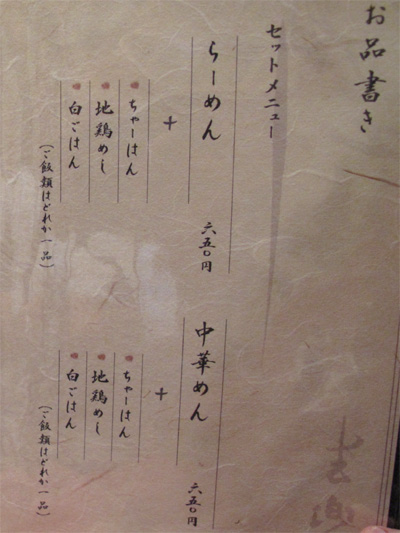 お品書き
セットメニュー
らーめん
六五〇円
+
ちゃーはん
地鶏めし
白ごはん
(ご飯類はどれか一品)
中華めん
六五〇円
+
ちゃーはん
地鶏めし
白ごはん
(ご飯類はどれか一品)